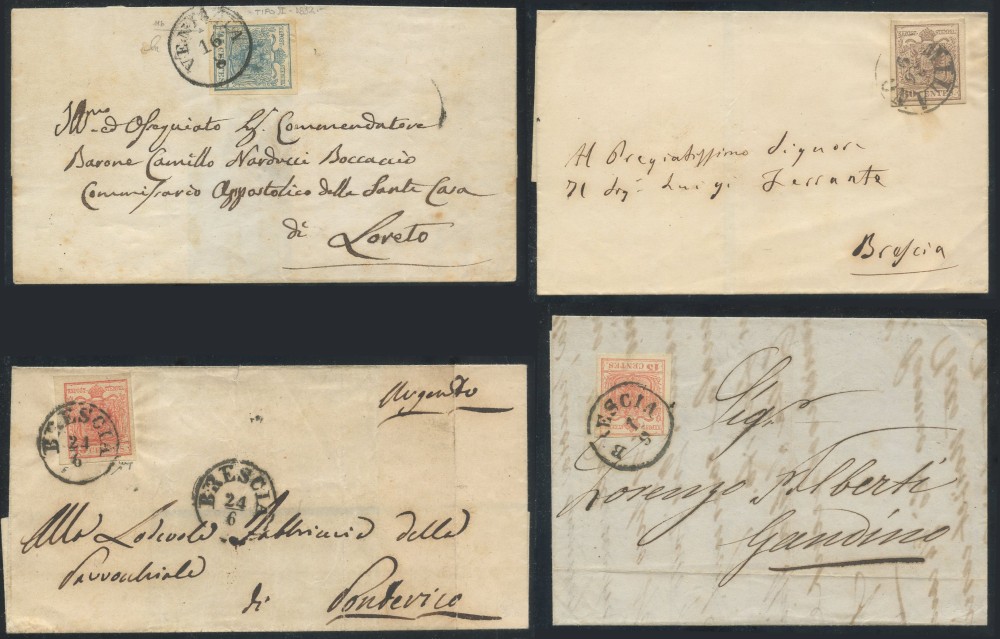 TIPO II - 1852
VENEZIA
16
Ill.mo ed Ossequiato Sig. Commendatore
Barone Camillo Narducci Boccaccio
Commissario Appostolico della Santa Casa
di Loreto
MILANO
30 CENTES
Al Pregiatissimo Signore
Il Sig.r Luigi Ferrante
Brescia
BRESCIA
24
6
Urgente
BRESCIA
24
6
Alla Lodevole Fabbriceria della
Parrocchiale
di Pontevico
15 CENTES
BRESCIA
Sig.r
Lorenzo Alberti
Gandino